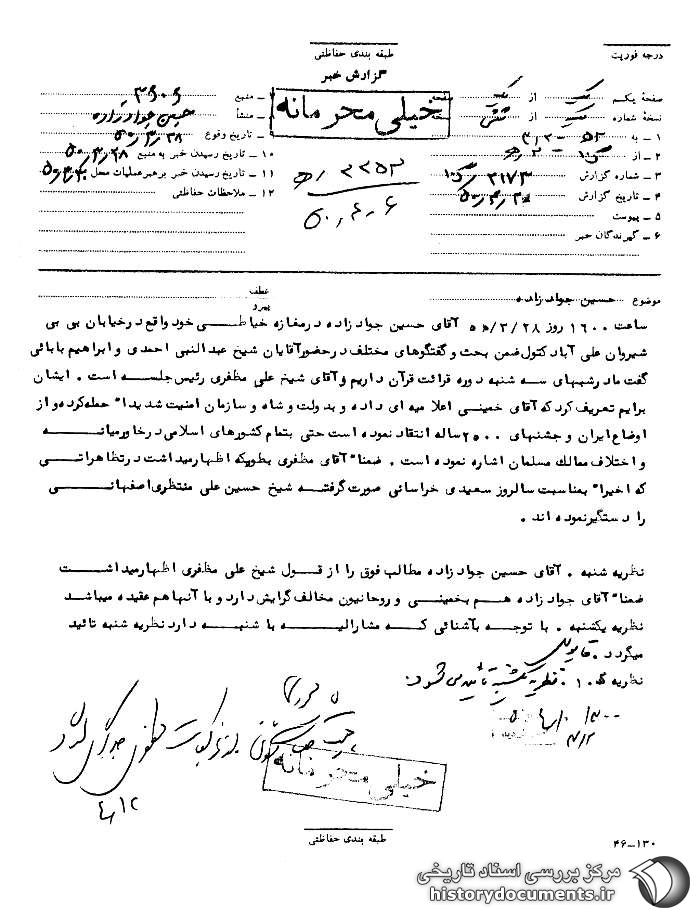 طبقه بندی حفاظتی
درجه فوریت
گزارش خبر
خیلی محرمانه
صفحه یکم یک از یک صفحه
نسخه شماره از نسخه
۱ - به
۲ - از
۳ - شماره گزارش ۲۱۷۳
۴ - تاریخ گزارش
۵ - پیوست
۶ - گیرندگان خبر
- منبع ۳۹۰۶
- منشأ حسین جوادزاده
- تاریخ وقوع ۵۰/۳/۲۸
۱۰ - تاریخ رسیدن خبر به منبع ۵۰/۳/۲۸
۱۱ - تاریخ رسیدن خبر برهبر عملیات محل
۱۲ - ملاحظات حفاظتی
۵۰٫۴٫۶
موضوع حسین جوادزاده
عطف
پیرو
ساعت ۱۶۰۰ روز ۵۰/۳/۲۸ آقای حسین جوادزاده در مغازه خیاطی خود واقع در خیابان بی بی
شیروان علی آباد کتول ضمن بحث و گفتگوهای مختلف در حضور آقایان شیخ عبدالنبی احمدی و ابراهیم بابائی
گفت ما در شبهای سه شنبه دوره قرائت قرآن داریم و آقای شیخ علی مظفری رئیس جلسه است . ایشان
برایم تعریف کرد که آقای خمینی اعلامیه ای داده و به دولت و شاه و سازمان امنیت شدیدا" حمله کرده و از
اوضاع ایران و جشنهای ۲۵۰۰ ساله انتقاد نموده است حتی بتمام کشورهای اسلامی در خاورمیانه
و اختلاف ممالک مسلمان اشاره نموده است . ضمنا" آقای مظفری بطوریکه اظهار میداشت در تظاهراتی
که اخیرا" بمناسبت سالروز سعیدی خراسانی صورت گرفته شیخ حسین علی منتظری اصفهانی
را دستگیر نموده اند .
نظریه شنبه . آقای حسین جوادزاده مطالب فوق را از قول شیخ علی مظفری اظهار میداشت
ضمنا" آقای جوادزاده هم بخمینی و روحانیون مخالف گرایش دارد و با آنها هم عقیده میباشد
نظریه یکشنبه . با توجه بآشنائی که مشارالیه با شنبه دارد نظریه شنبه تائید
میگردد .
نظریه ۱۰ ه . نظریه یکشنبه تأیید می شود .
خیلی محرمانه
طبقه بندی حفاظتی
۴۶-۱۳۰
مرکز بررسی اسناد تاریخی
historydocuments.ir